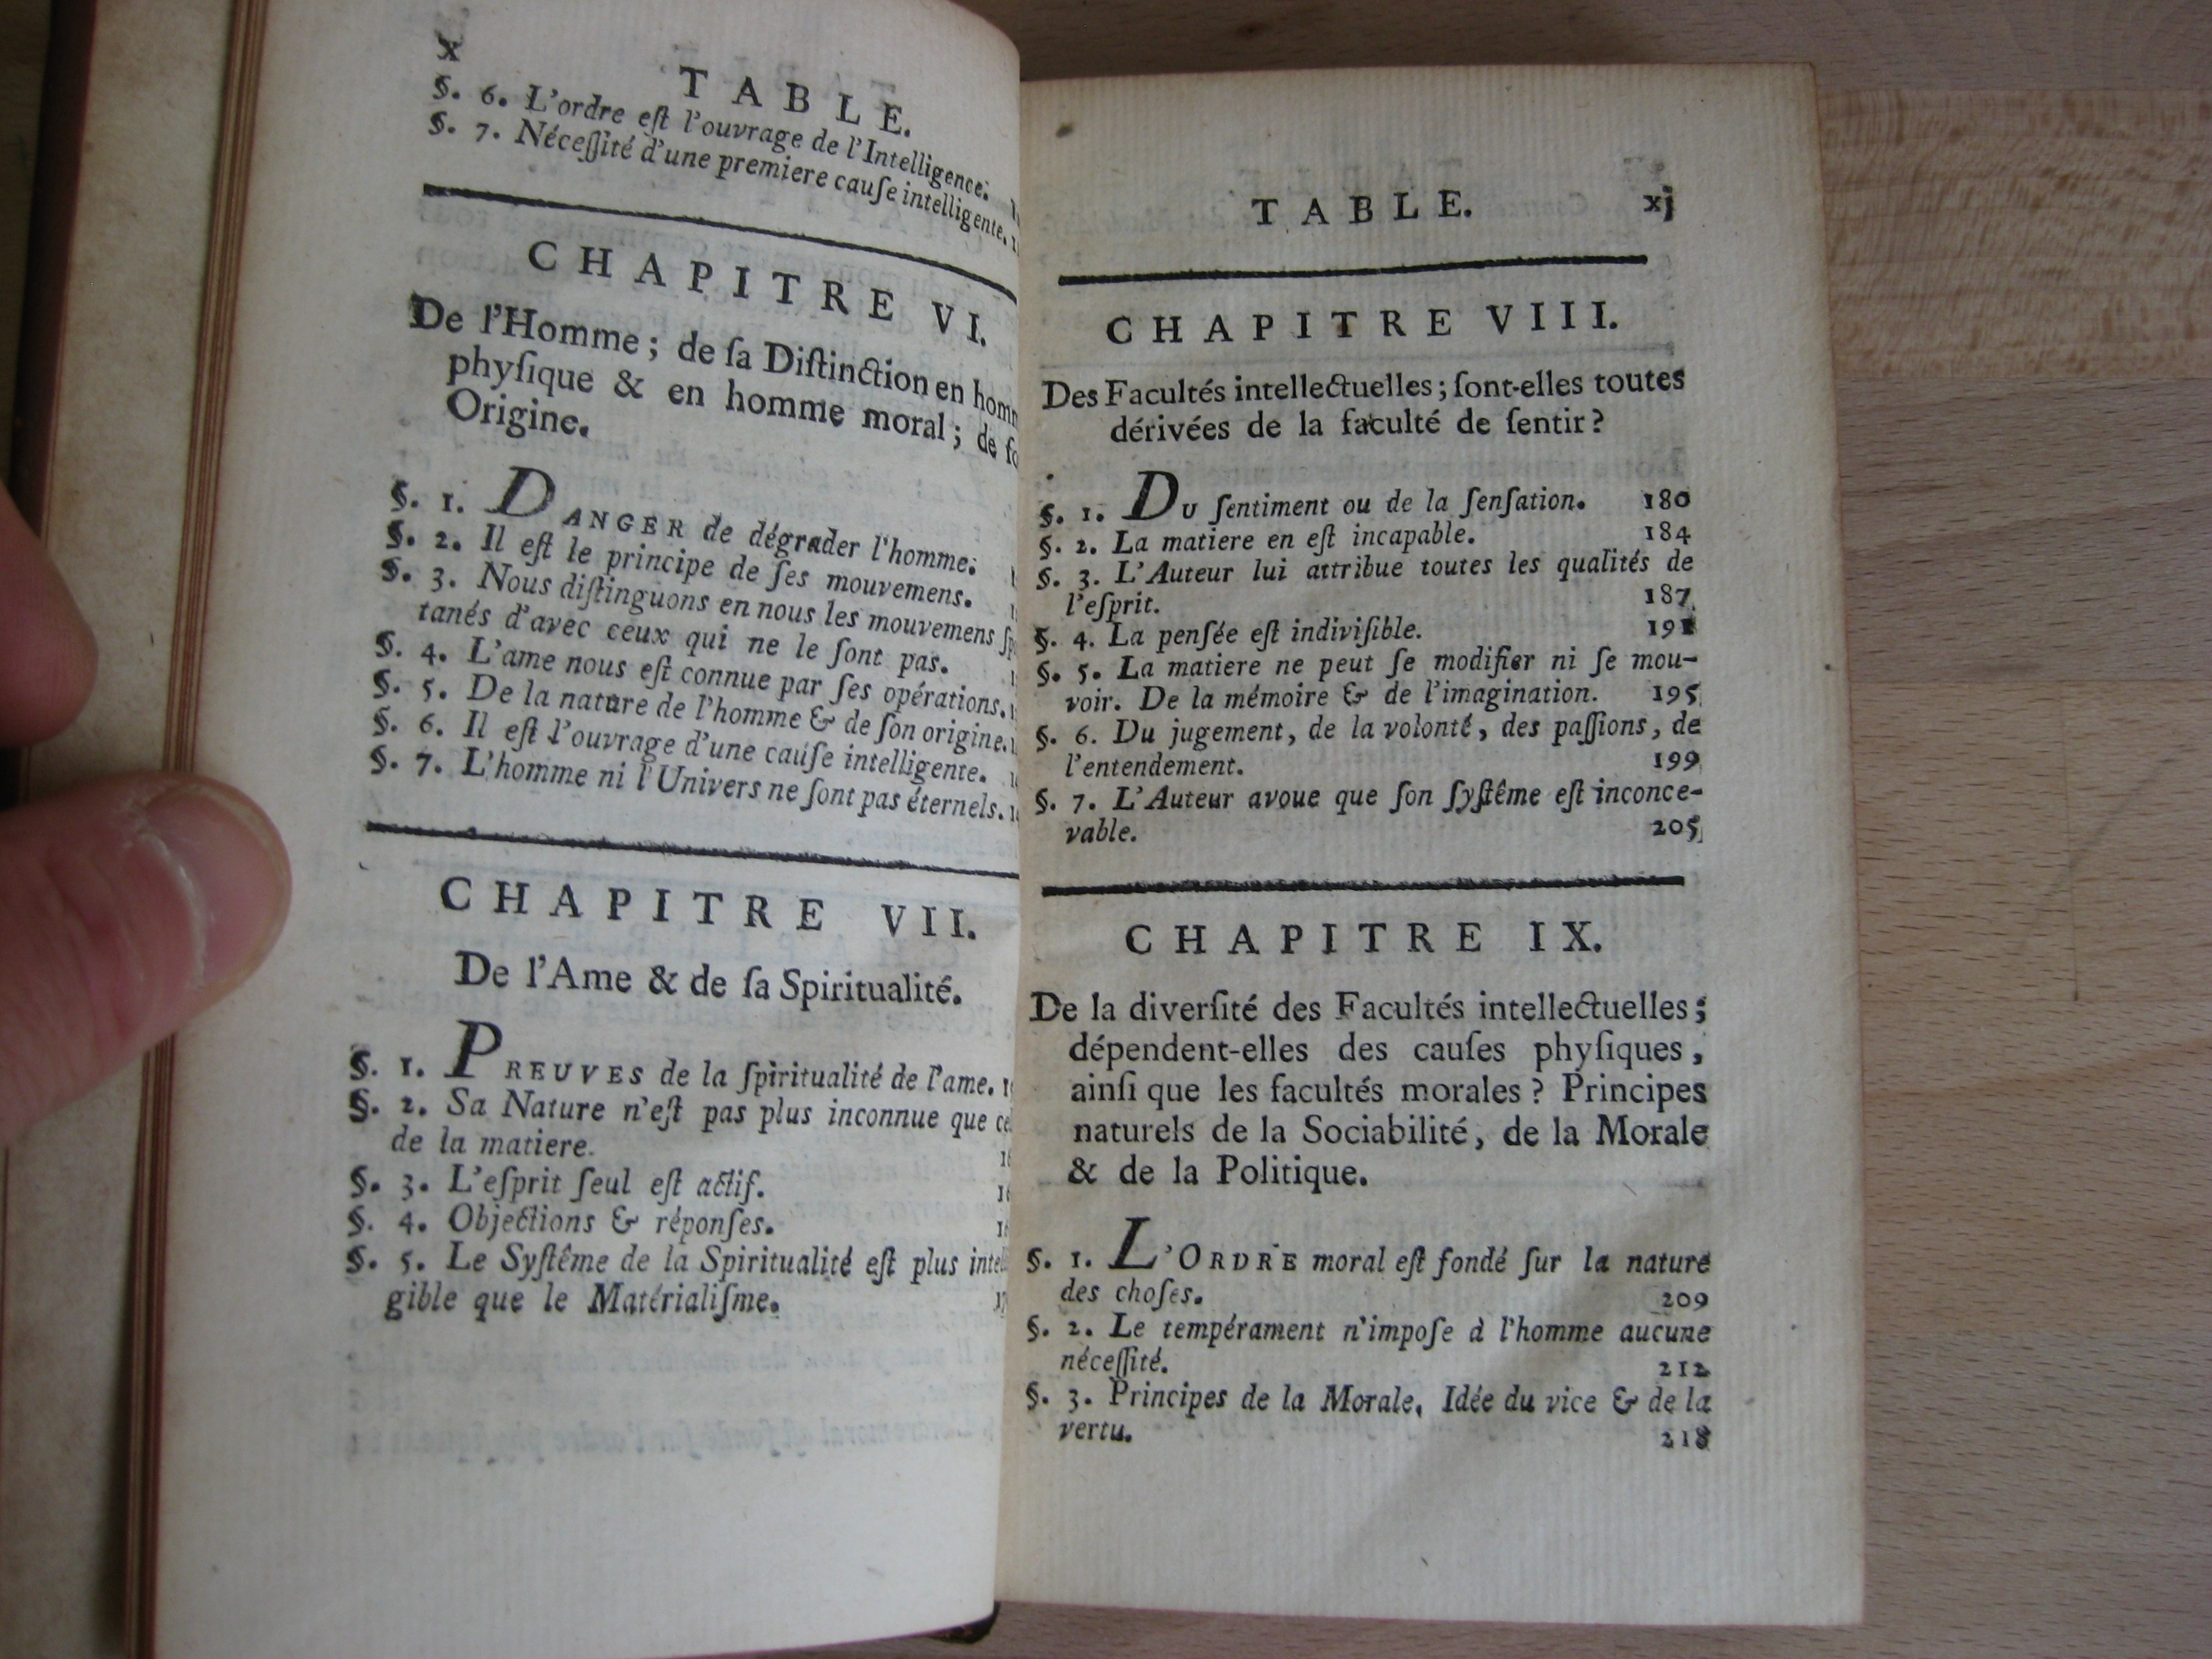 x
TABLE.
§. 6. L'ordre eſt l'ouvrage de l'Intelligence.
§. 7. Néceſſité d'une premiere cauſe intelligente.
CHAPITRE VI.
De l'Homme ; de ſa Diſtinction en
phyſique & en homme moral ; de
Origine.
§. 1. DANGER de dégrader l'homme.
§. 2. Il eſt le principe de ſes mouvemens.
§. 3. Nous diſtinguons en nous les mouvemens
tanés d'avec ceux qui ne le ſont pas.
§. 4. L'ame nous eſt connue par ſes opérations.
§. 5. De la nature de l'homme & de ſon origine.
§. 6. Il eſt l'ouvrage d'une cauſe intelligente.
§. 7. L'homme ni l'Univers ne ſont pas éternels.
CHAPITRE VII.
De l'Ame & de ſa Spiritualité.
§. 1. PREUVES de la ſpiritualité de l'ame.
§. 2. Sa Nature n'eſt pas plus inconnue que
de la matiere.
§. 3. L'eſprit ſeul eſt actif.
§. 4. Objections & réponſes.
§. 5. Le Syſtême de la Spiritualité eſt plus
gible que le Matérialiſme.
TABLE. xj
CHAPITRE VIII.
Des Facultés intellectuelles ; ſont-elles toutes
dérivées de la faculté de ſentir ?
§. 1. DU ſentiment ou de la ſenſation. 180
§. 2. La matiere en eſt incapable. 184
§. 3. L'Auteur lui attribue toutes les qualités de
l'eſprit. 187
§. 4. La penſée eſt indiviſible. 191
§. 5. La matiere ne peut ſe modifier ni ſe mou-
voir. De la mémoire & de l'imagination. 195
§. 6. Du jugement, de la volonté, des paſſions, de
l'entendement. 199
§. 7. L'Auteur avoue que ſon ſyſtême eſt inconce-
vable. 205
CHAPITRE IX.
De la diverſité des Facultés intellectuelles ;
dépendent-elles des cauſes phyſiques,
ainſi que les facultés morales ? Principes
naturels de la Sociabilité, de la Morale
& de la Politique.
§. 1. L'ORDRE moral eſt fondé ſur la nature
des choſes. 209
§. 2. Le tempérament n'impoſe à l'homme aucune
néceſſité. 212
§. 3. Principes de la Morale, Idée du vice & de la
vertu. 218